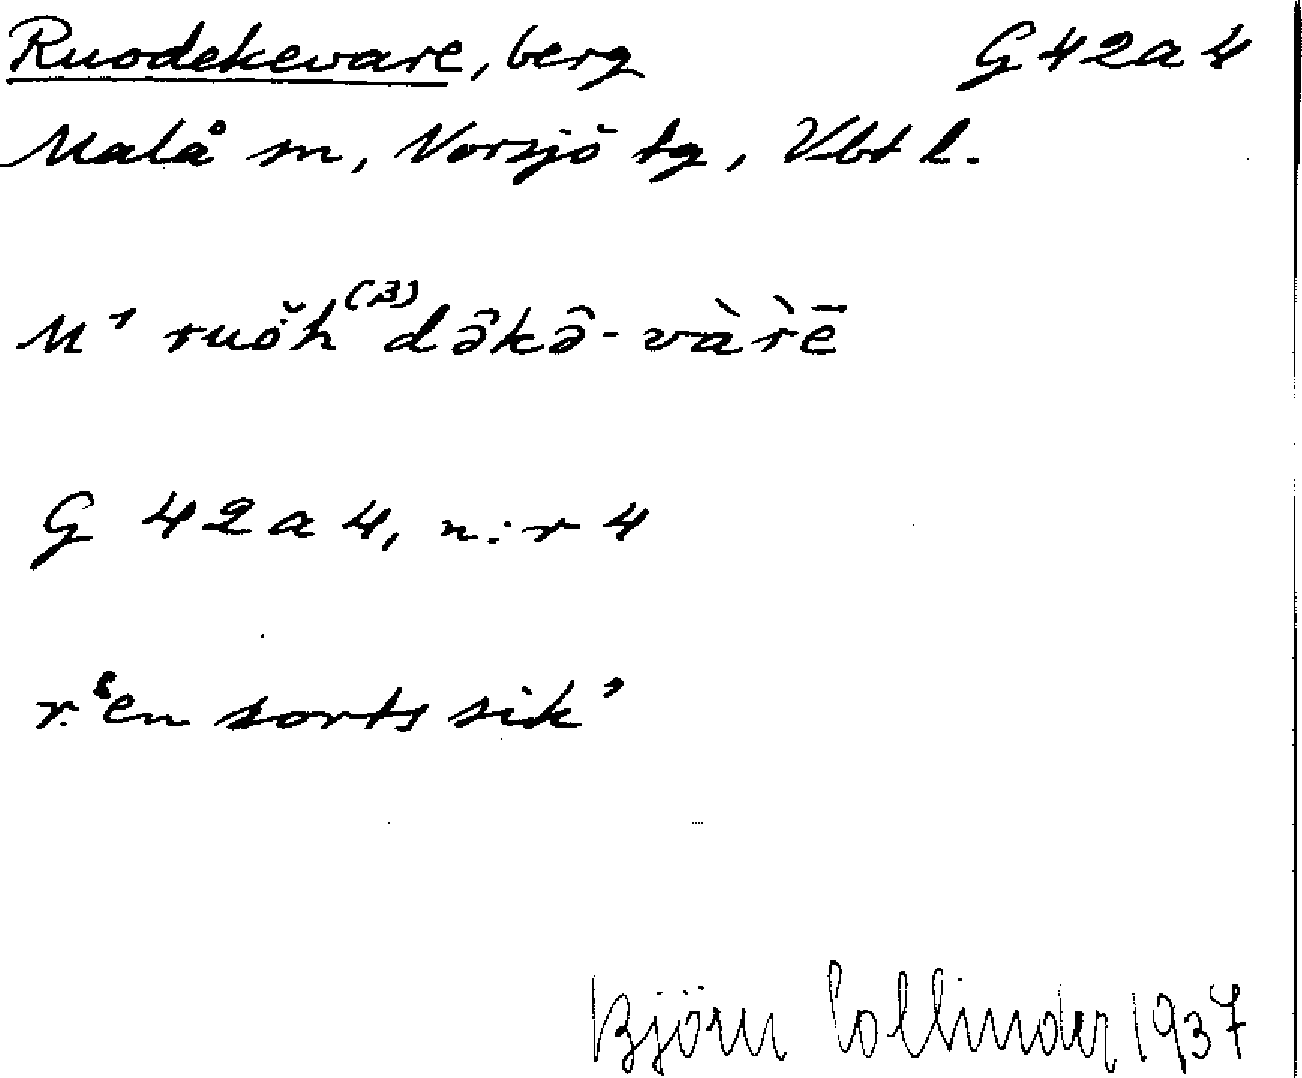 Ruodekevare, berg G 42 a 4
Malå sn, Norsjö tg, Vbt l.
M¹ ruŏh⁽ᴮ⁾də̂kə̂-vàr̀ē
G 42 a 4, n:r 4
r. ‘en sorts sik’
Björn Collinder 1937